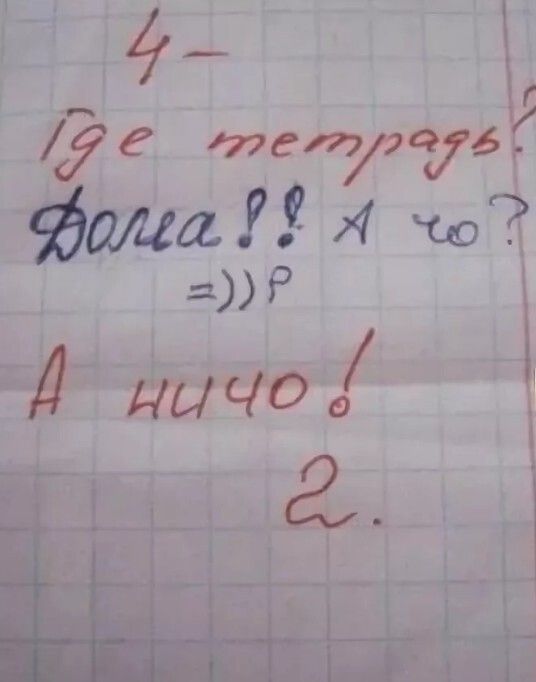 4-
Где тетрадь?
Дома!! А чо?
=))?
А ничо!
2.